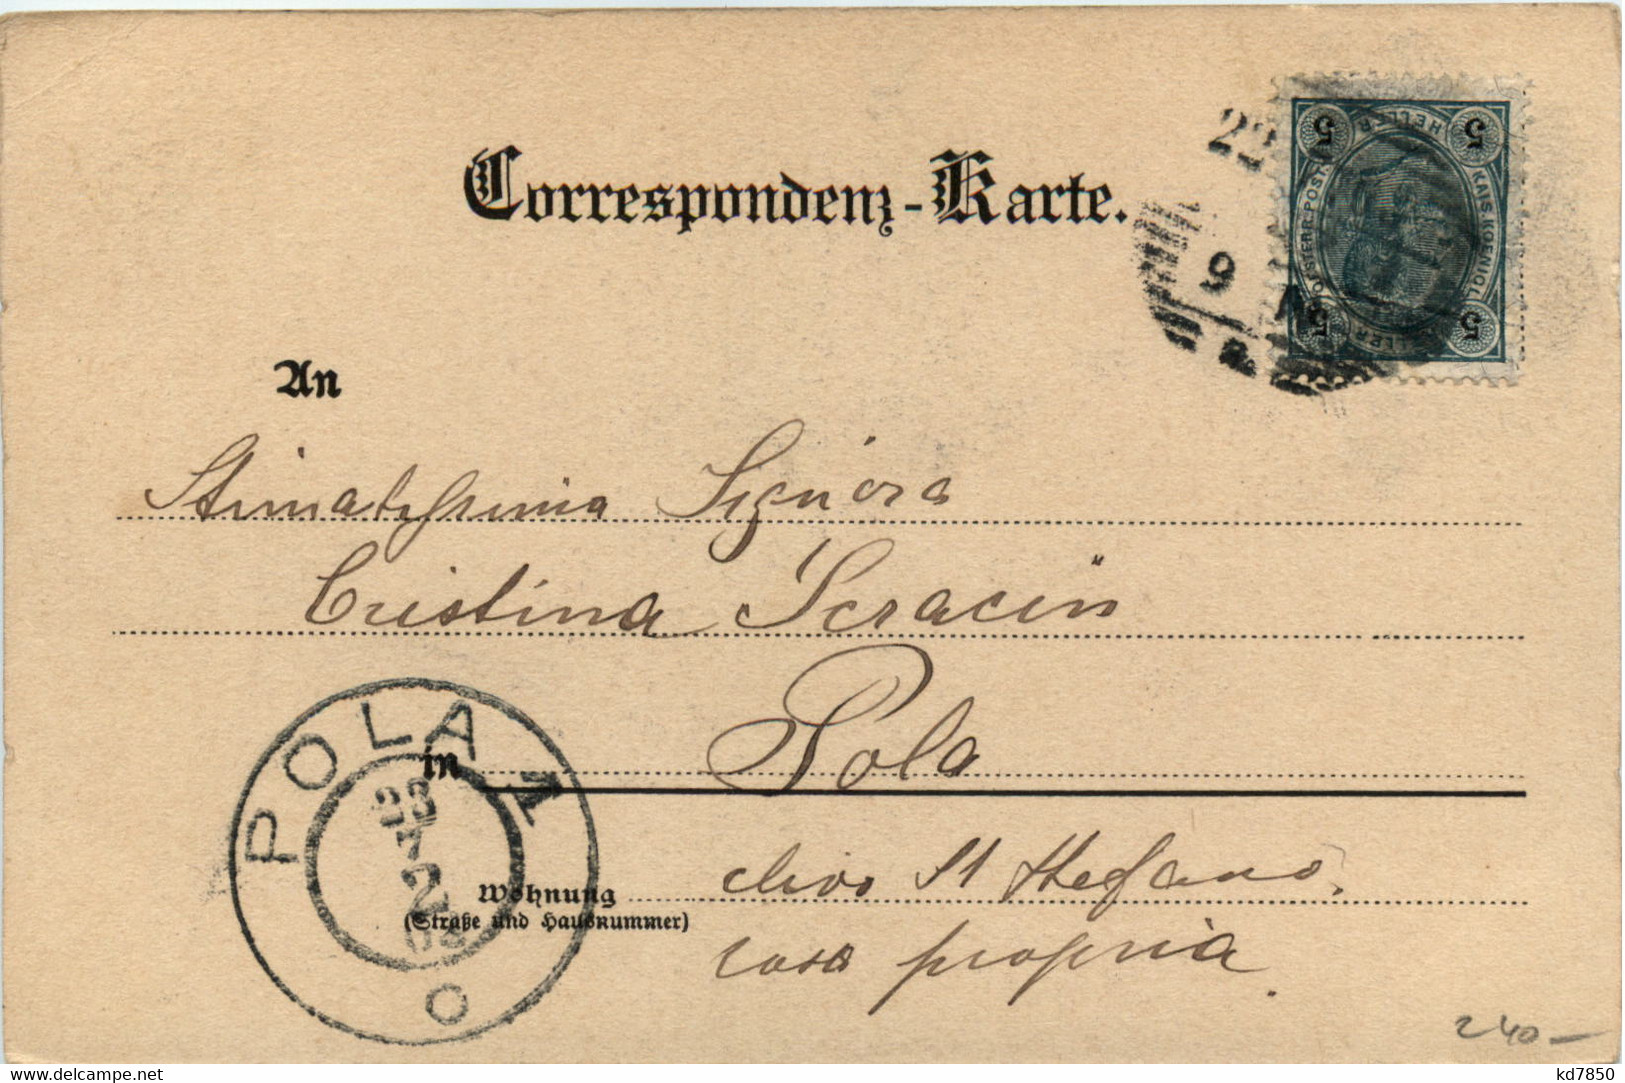 Correspondenz-Karte.
22
9
5 HELLER 5
KAIS. KOENIGL. OESTERR. POST
5 HELLER 5
An
Stimatissima Signora
Cristina Scracin
POLA 1
in Pola
23
7
2
Wohnung clivo St Stefano.
(Straße und Hausnummer)
casa propria.
240—
www.delcampe.net
kd7850